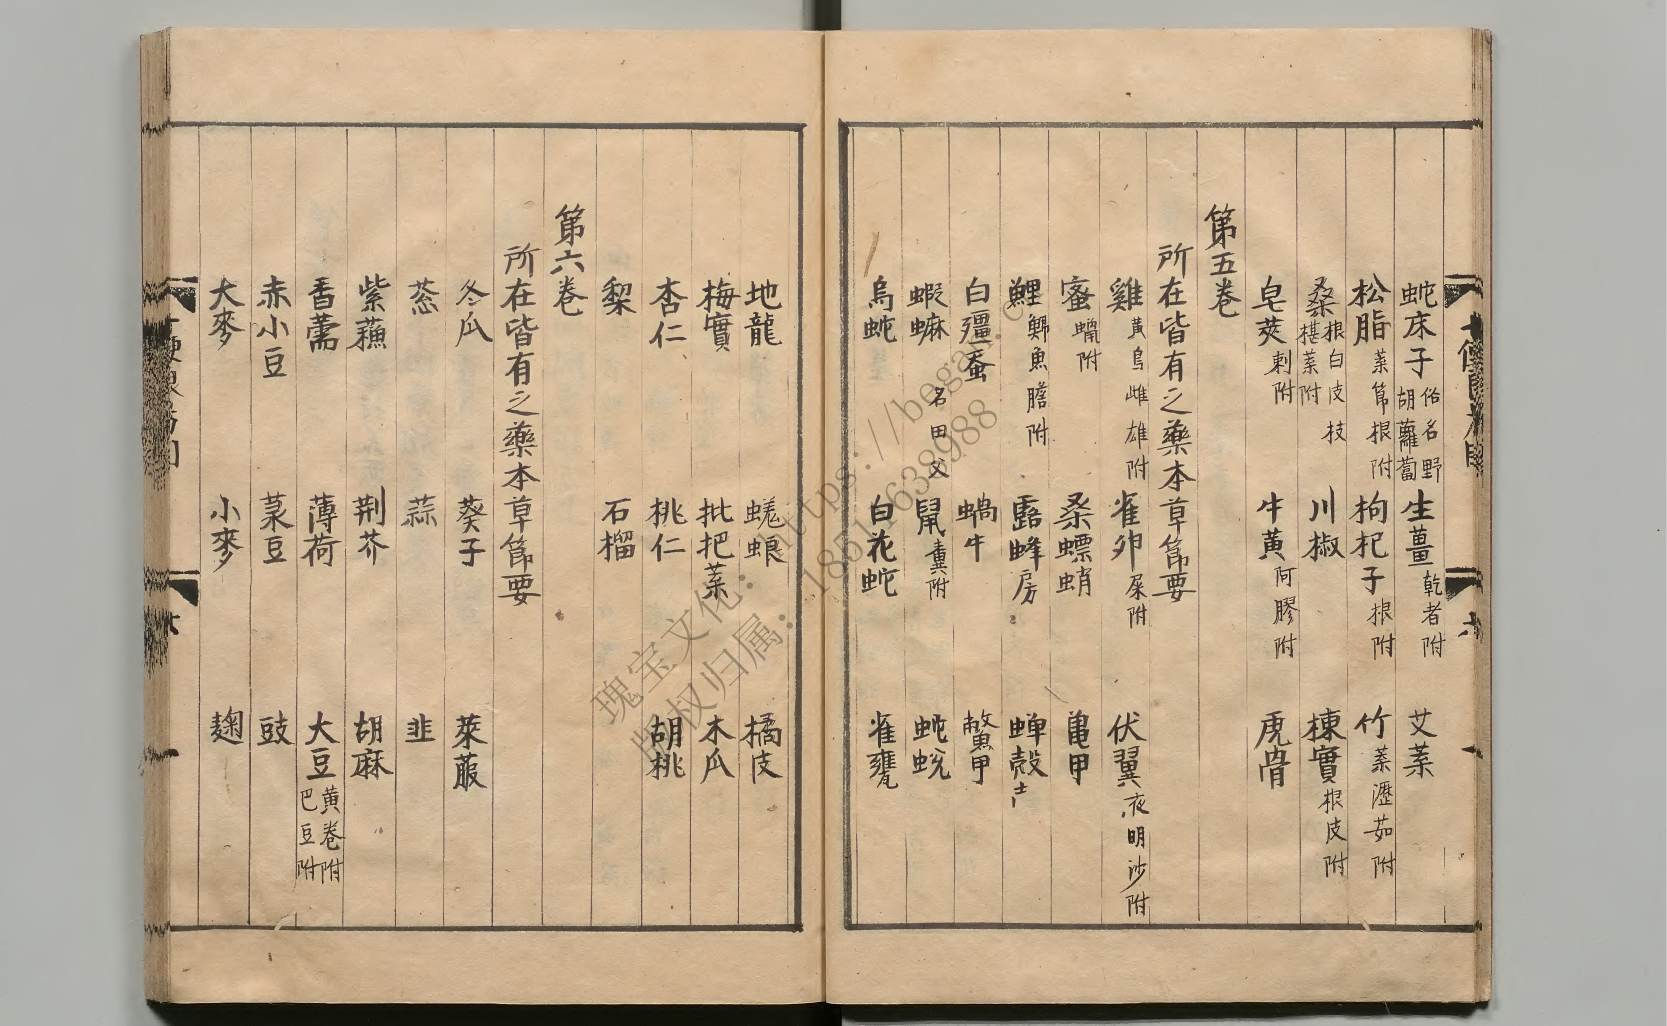 蛇床子 俗名野胡蘿蔔 生薑 乾者附 艾葉
松脂 葉節根附 枸杞子 根附 竹 葉瀝茹附
桑 根白皮枝椹葉附 川椒 楝實 根皮附
皂莢 刺附 牛黃 阿膠附 虎骨
第五卷
所在皆有之藥本草節要
雞 黃烏雌雄附 雀卵 屎附 伏翼 夜明沙附
蜜 蠟附 桑螵蛸 龜甲
鯉 鯽魚膽附 露蜂房 蟬殼
白殭蚕 蝸牛 鱉甲
蝦蟆 名田父 鼠 糞附 蛇蛻
烏蛇 白花蛇 雀甕
地龍 蜣蜋 橘皮
梅實 批把葉 木瓜
杏仁 桃仁 胡桃
梨 石榴
第六卷
所在皆有之藥本草節要
冬瓜 葵子 萊菔
蔥 蒜 韭
紫蘓 荆芥 胡麻
香薷 薄荷 大豆 黃卷附巴豆附
赤小豆 菉豆 豉
大麥 小麥 麹
瑰宝文化：https://began.c
版权归属：18511638988